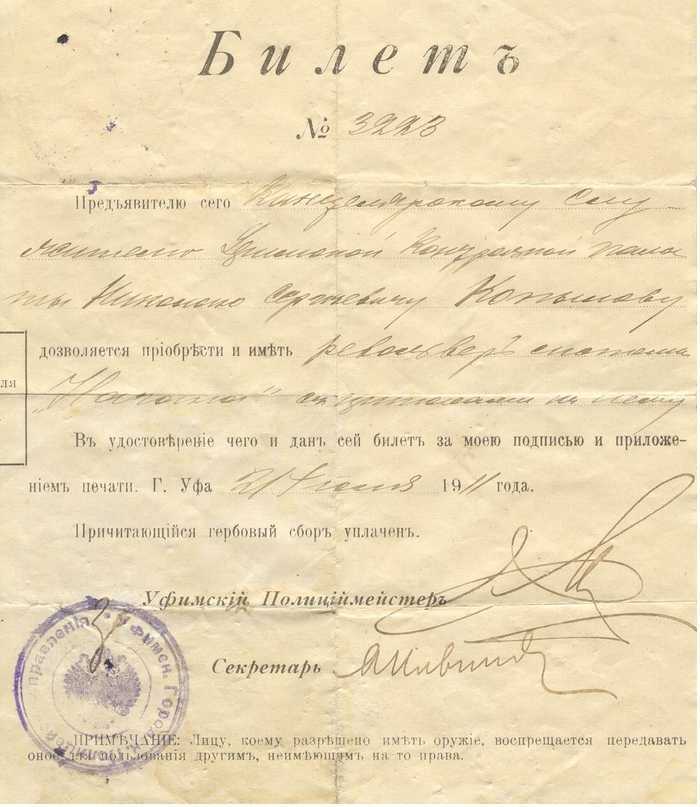 Билетъ
№ 3223
Предъявителю сего Канцелярскому слу-
жителю Уфимской Контрольной пала-
ты Николаю Сергѣевичу Копылову
дозволяется пріобрѣсти и имѣть револьверъ системы
ля
„Нагана" съ патронами къ нему
Въ удостовѣреніе чего и данъ сей билетъ за моею подписью и приложе-
ніемъ печати. Г. Уфа 21 Іюня 1911 года.
Причитающійся гербовый сборъ уплаченъ.
Уфимскій Полиціймейстеръ
Секретарь
Уфимск. Город. Полиц. правленія
ПРИМѢЧАНІЕ: Лицу, коему разрѣшено имѣть оружіе, воспрещается передавать
оное для пользованія другимъ, неимѣющимъ на то права.